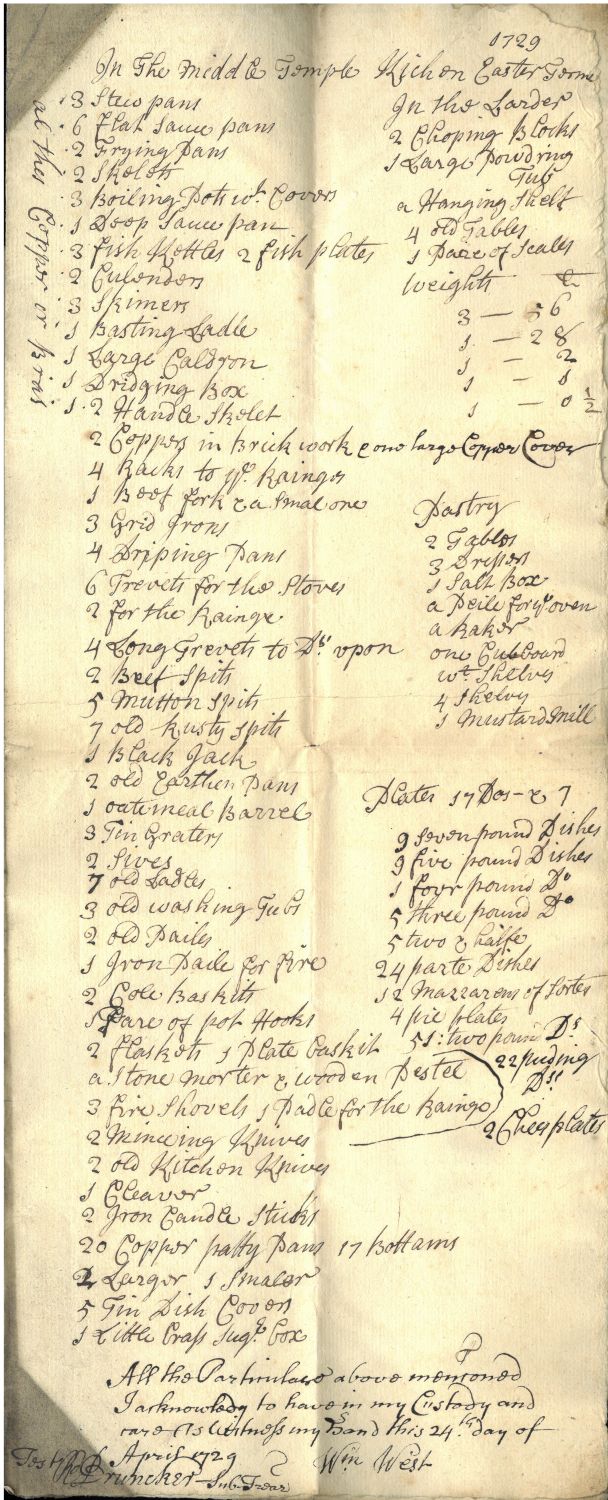 1729
In The Middle Temple Kichen Easter Terme
al thes Copper or bras
3 Stew pans
6 flat Sauce pans
2 Frying Pans
2 Skelets
3 Boiling Pots wt. Covers
1 Deep Sauce pan
3 fish Kettles 2 fish plates
2 Culenders
3 Skimers
1 Basting Ladle
1 Large Caldron
1 Dridging Box
1 2 Handle Skelet
2 Coppers in Brick work & one large Copper Cover
4 Racks to ye. Rainges
1 Beef fork & a Smal one
3 Grid Irons
4 Driping Pans
6 Trevets for the Stoves
2 for the Rainge
4 Long Trevets to Ds. vpon
2 Beef Spits
5 Mutton Spits
7 old Rusty Spits
1 Black Jack
2 old Earthen Pans
1 oatemeal Barrel
3 Tin Graters
2 Sives
7 old Ladles
3 old washing Tubs
2 old Pailes
1 Iron Paile for fire
2 Cole Baskits
1 Pare of pot Hooks
2 flaskets 1 Plate baskit
a Stone Morter & wooden Pestel
3 fire Shovels 1 Padle for the Rainge
2 Minceing Knives
2 old Kitchen Knives
1 Cleaver
2 Iron Candle Sticks
20 Copper patty Pans 17 Bottams
2 Larger 1 Smaler
5 Tin Dish Covers
1 Little brass Sugr. box
In the Larder
2 Choping Blocks
1 Large Powdring
Tub
a Hanging Shelf
4 old Tables
1 Pare of Scales
Weights
3 — 56
1 — 28
1 — 2
1 — 1
1 — 0 1/2
Pastry
2 Tables
3 Dressers
1 Salt Box
a Peile for ye. oven
a Raker
one Cubboard
wt. Shelves
4 Shelvs
1 Mustard Mill
Plates 17 Dos - & 7
9 Seven pound Dishes
9 five pound Dishes
1 four pound Do
5 three pound Do
5 two & halfe
24 parte Dishes
12 Mazzarens of Sortes
4 pie plates
51: two pound Ds.
22 puding
Dss
2 Chees plates
All the Particulars above mentioned
I acknowledg to have in my Custody and
care As Witness my Hand this 24th. day of
April 1729 Wm. West
Test R Bruncker Sub-Trear